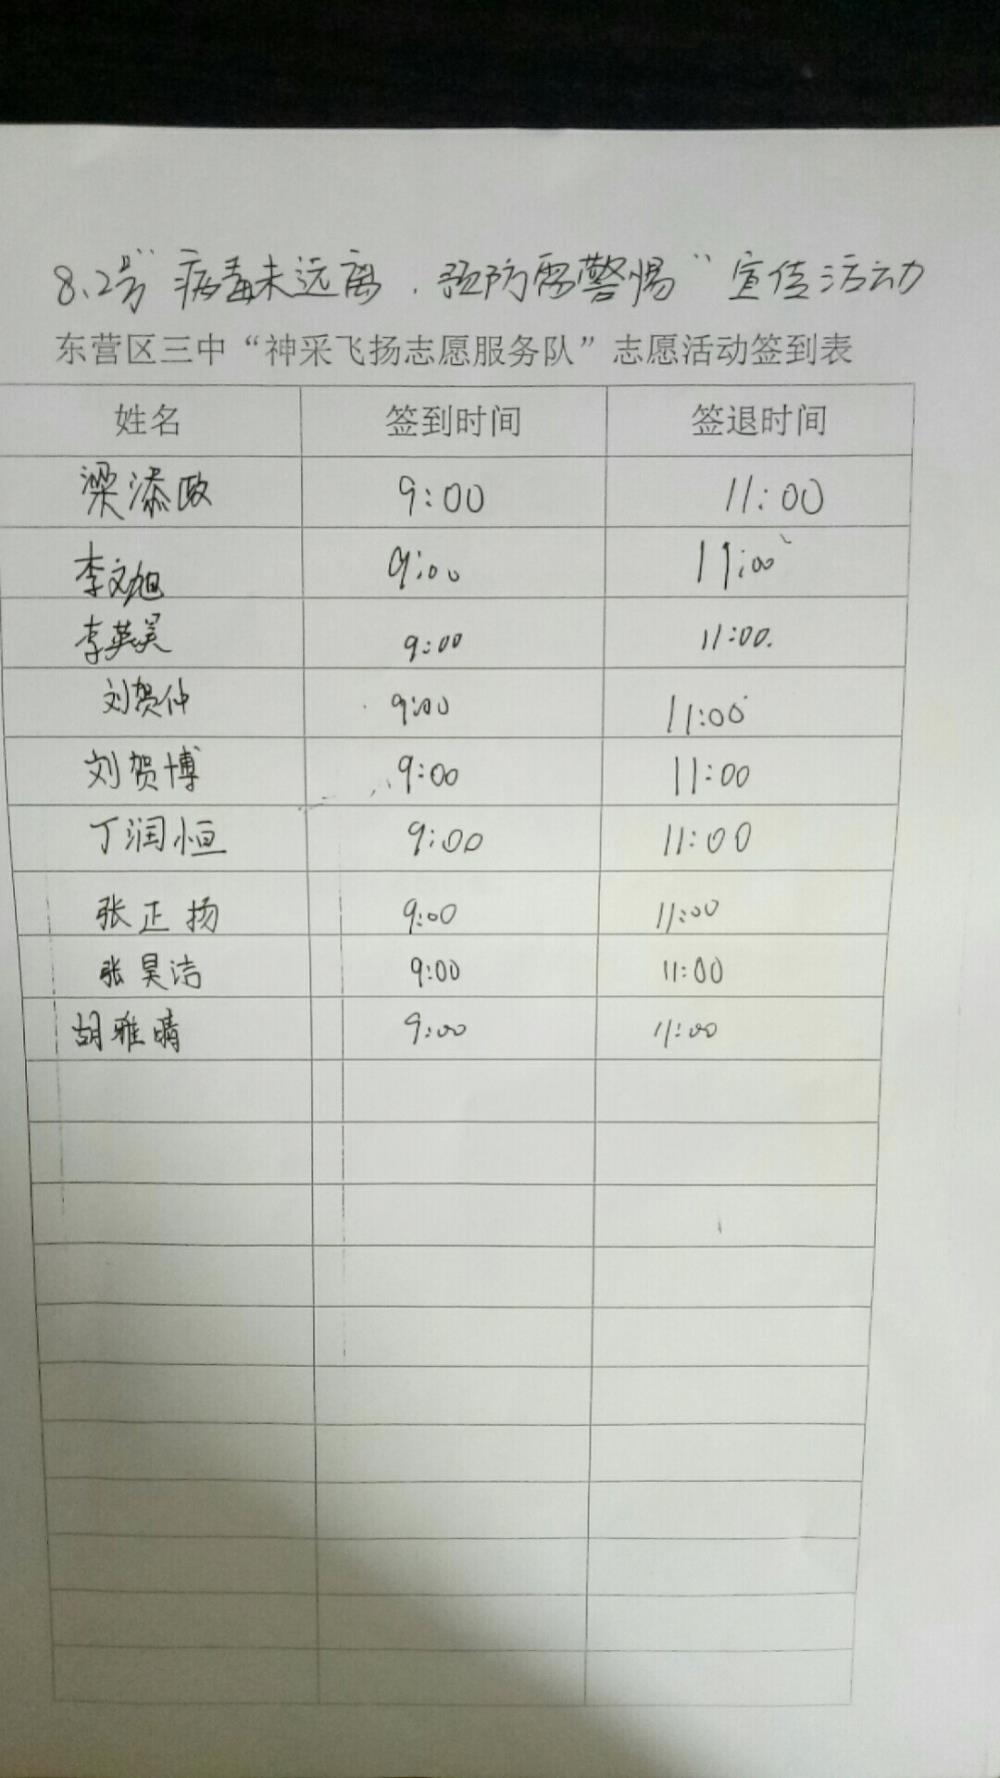 8.2号“病毒未远离.预防需警惕”宣传活动
东营区三中“神采飞扬志愿服务队”志愿活动签到表
姓名 签到时间 签退时间
梁添政 9:00 11:00
李文旭 9:00 11:00
李英昊 9:00 11:00.
刘贺仲 9:00 11:00
刘贺博 9:00 11:00
丁润恒 9:00 11:00
张正扬 9:00 11:00
张昊洁 9:00 11:00
胡雅晴 9:00 11:00